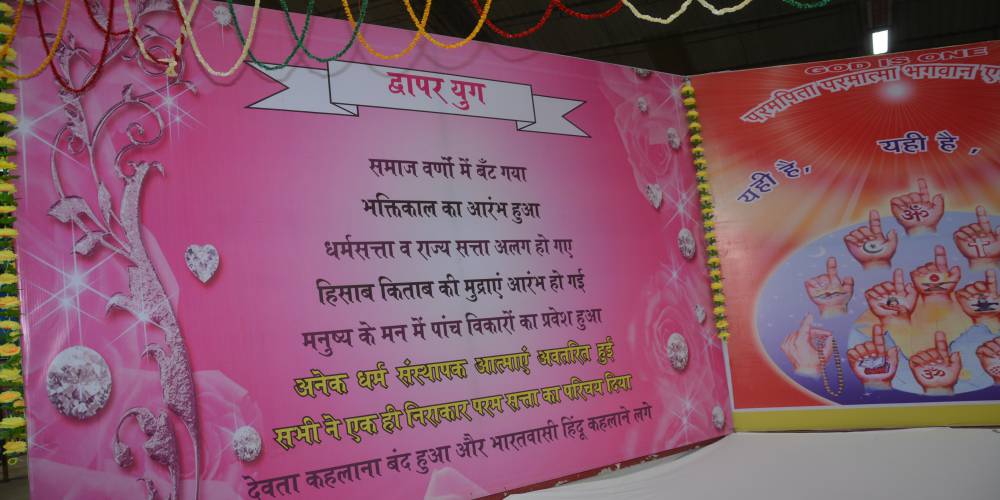 द्वापर युग
समाज वर्णों में बँट गया
भक्तिकाल का आरंभ हुआ
धर्मसत्ता व राज्य सत्ता अलग हो गए
हिसाब किताब की मुद्राएं आरंभ हो गई
मनुष्य के मन में पांच विकारों का प्रवेश हुआ
अनेक धर्म संस्थापक आत्माएं अवतरित हुई
सभी ने एक ही निराकार परम सत्ता का परिचय दिया
देवता कहलाना बंद हुआ और भारतवासी हिंदू कहलाने लगे
GOD IS ONE
परमपिता परमात्मा भगवान ए
यही है, यही है,
ॐ
ॐ